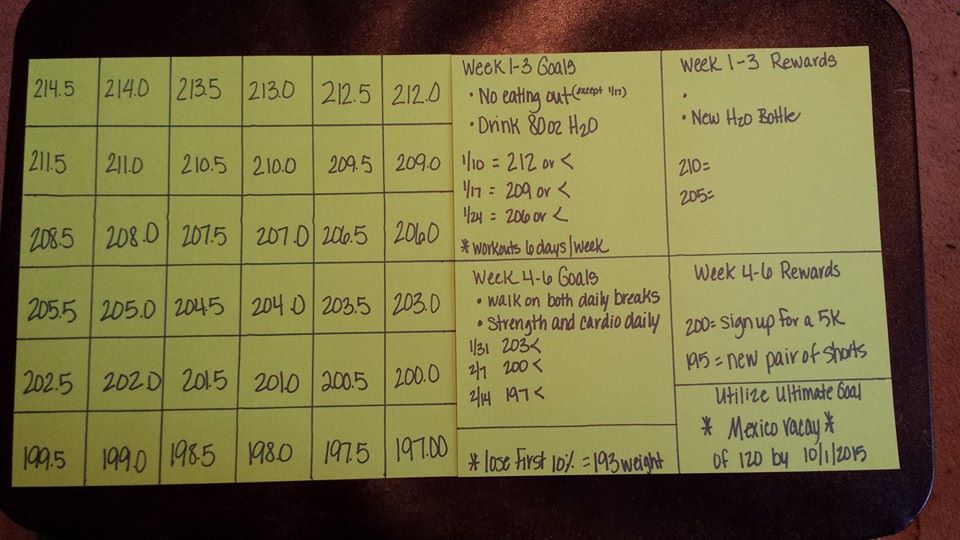 214.5 214.0 213.5 213.0 212.5 212.0
211.5 211.0 210.5 210.0 209.5 209.0
208.5 208.0 207.5 207.0 206.5 206.0
205.5 205.0 204.5 204.0 203.5 203.0
202.5 202.0 201.5 201.0 200.5 200.0
199.5 199.0 198.5 198.0 197.5 197.00
Week 1-3 Goals
• No eating out (except 1/17)
• Drink 80oz H2O
1/10 = 212 or <
1/17 = 209 or <
1/24 = 206 or <
* workouts 6 days/week
Week 4-6 Goals
• walk on both daily breaks
• strength and cardio daily
1/31 203<
2/7 200<
2/14 197<
* lose First 10% = 193 weight
Week 1-3 Rewards
•
• New H2O Bottle
210=
205=
Week 4-6 Rewards
200= sign up for a 5K
195 = new pair of shorts
Utilize Ultimate Goal
* Mexico vacay *
of 120 by 10/1/2015